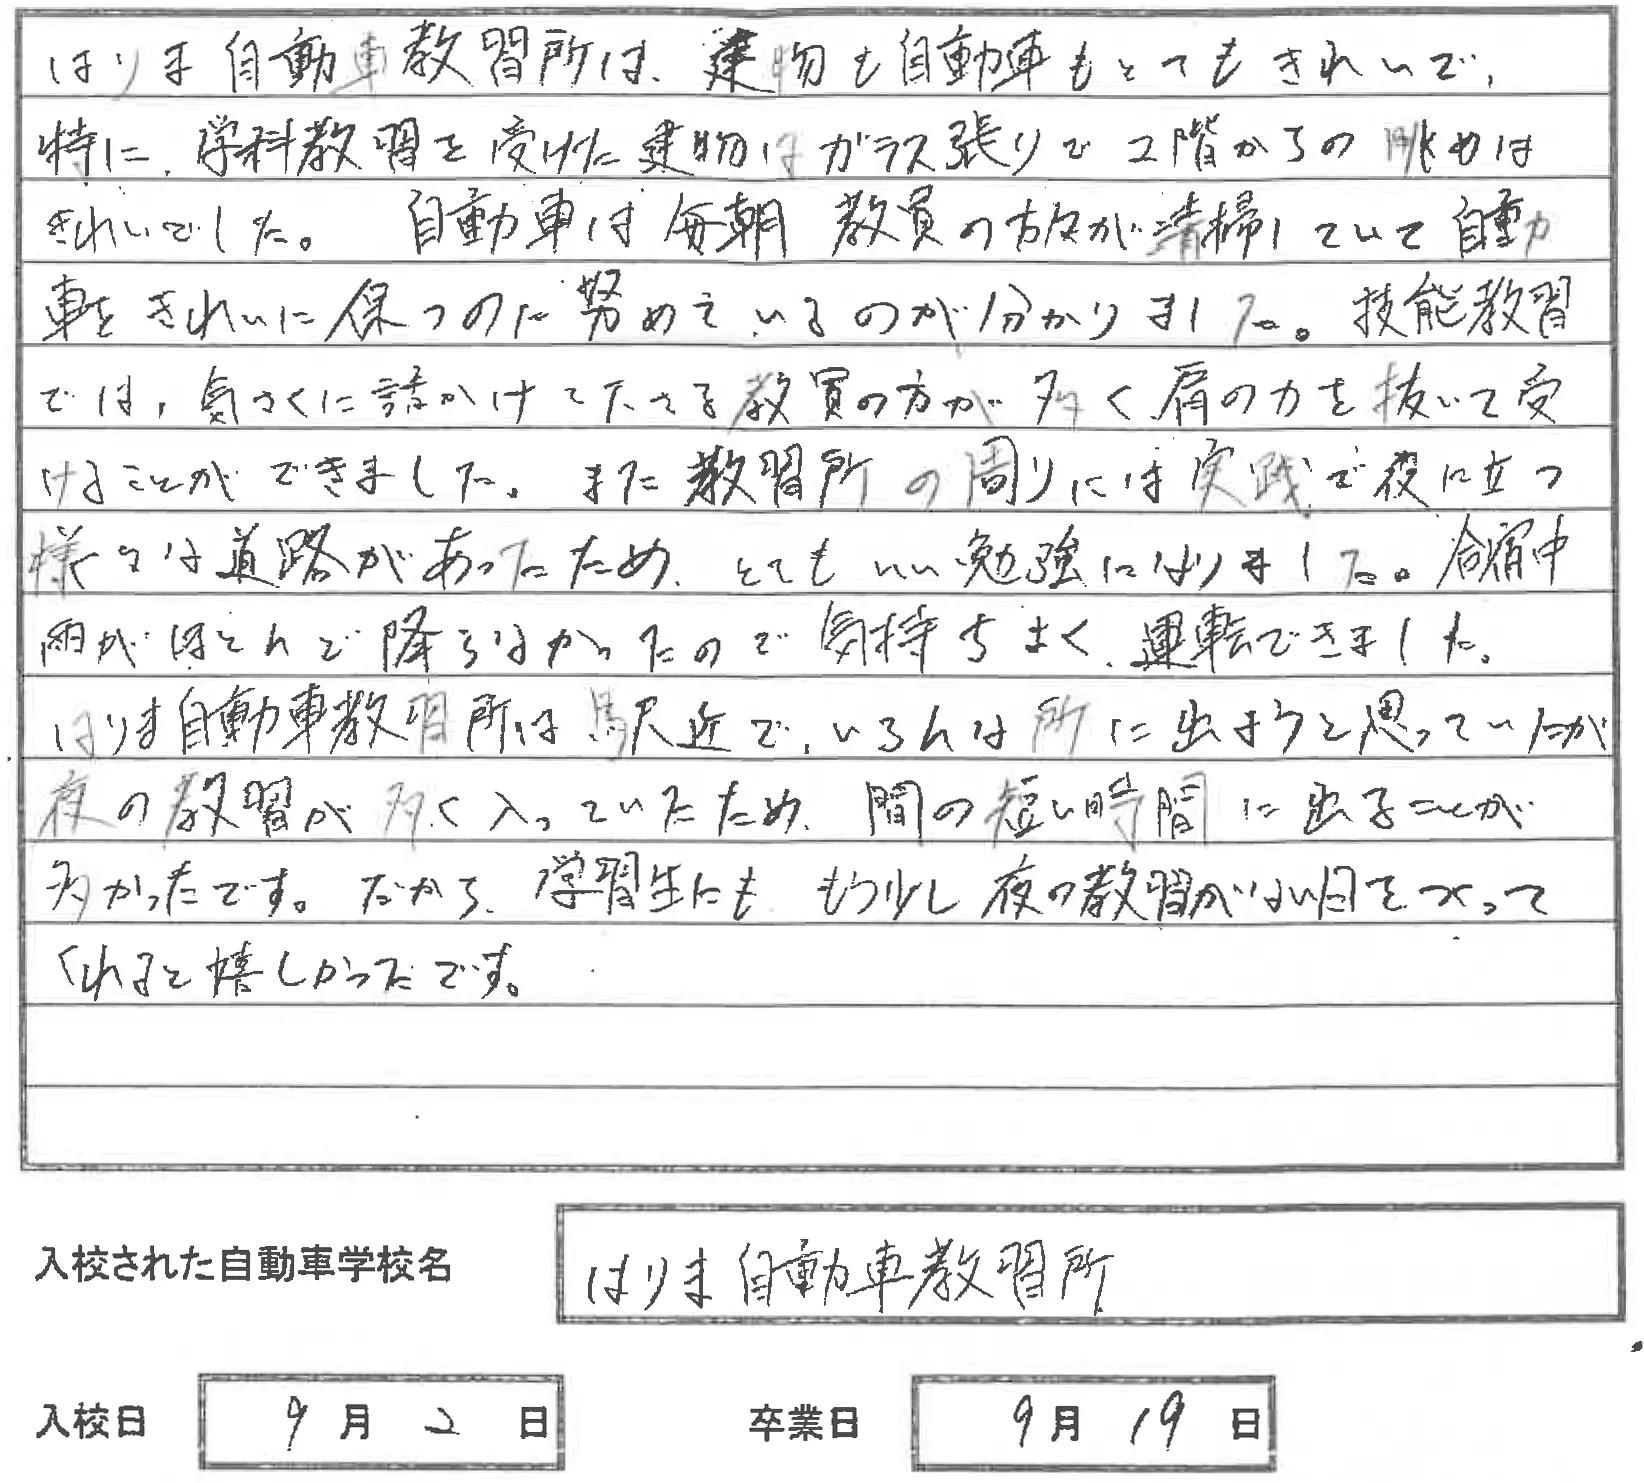 はりま自動車教習所は、建物も自動車もとてもきれいで、
特に、学科教習を受けた建物はガラス張りで2階からの眺めは
きれいでした。 自動車は毎朝 教員の方々が清掃していて自動
車をきれいに保つのに努めているのが分かりました。技能教習
では、気さくに話かけてくださる教員の方が多く肩の力を抜いて受
けることができました。また教習所の周りには実践で役に立つ
様々な道路があったため、とてもいい勉強になりました。合宿中
雨がほとんど降らなかったので気持ちよく、運転できました。
はりま自動車教習所は駅近で、いろんな所に出ようと思っていたが
夜の教習が多く入っていたため、間の短い時間に出ることが
多かったです。だから、学習生にも もう少し夜の教習がない日をつくって
くれると嬉しかったです。
入校された自動車学校名 はりま自動車教習所
入校日 9月2日 卒業日 9月19日